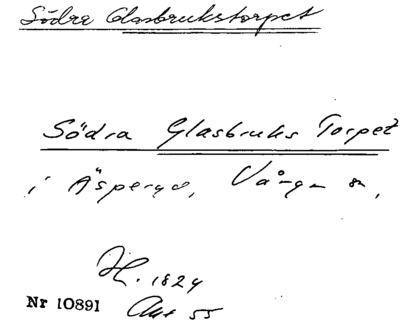 Södra Glasbrukstorpet
Södra Glasbruks Torpet
i Äsperyd, Vånga sn,
H. 1824
Nr 10891 Akt 55